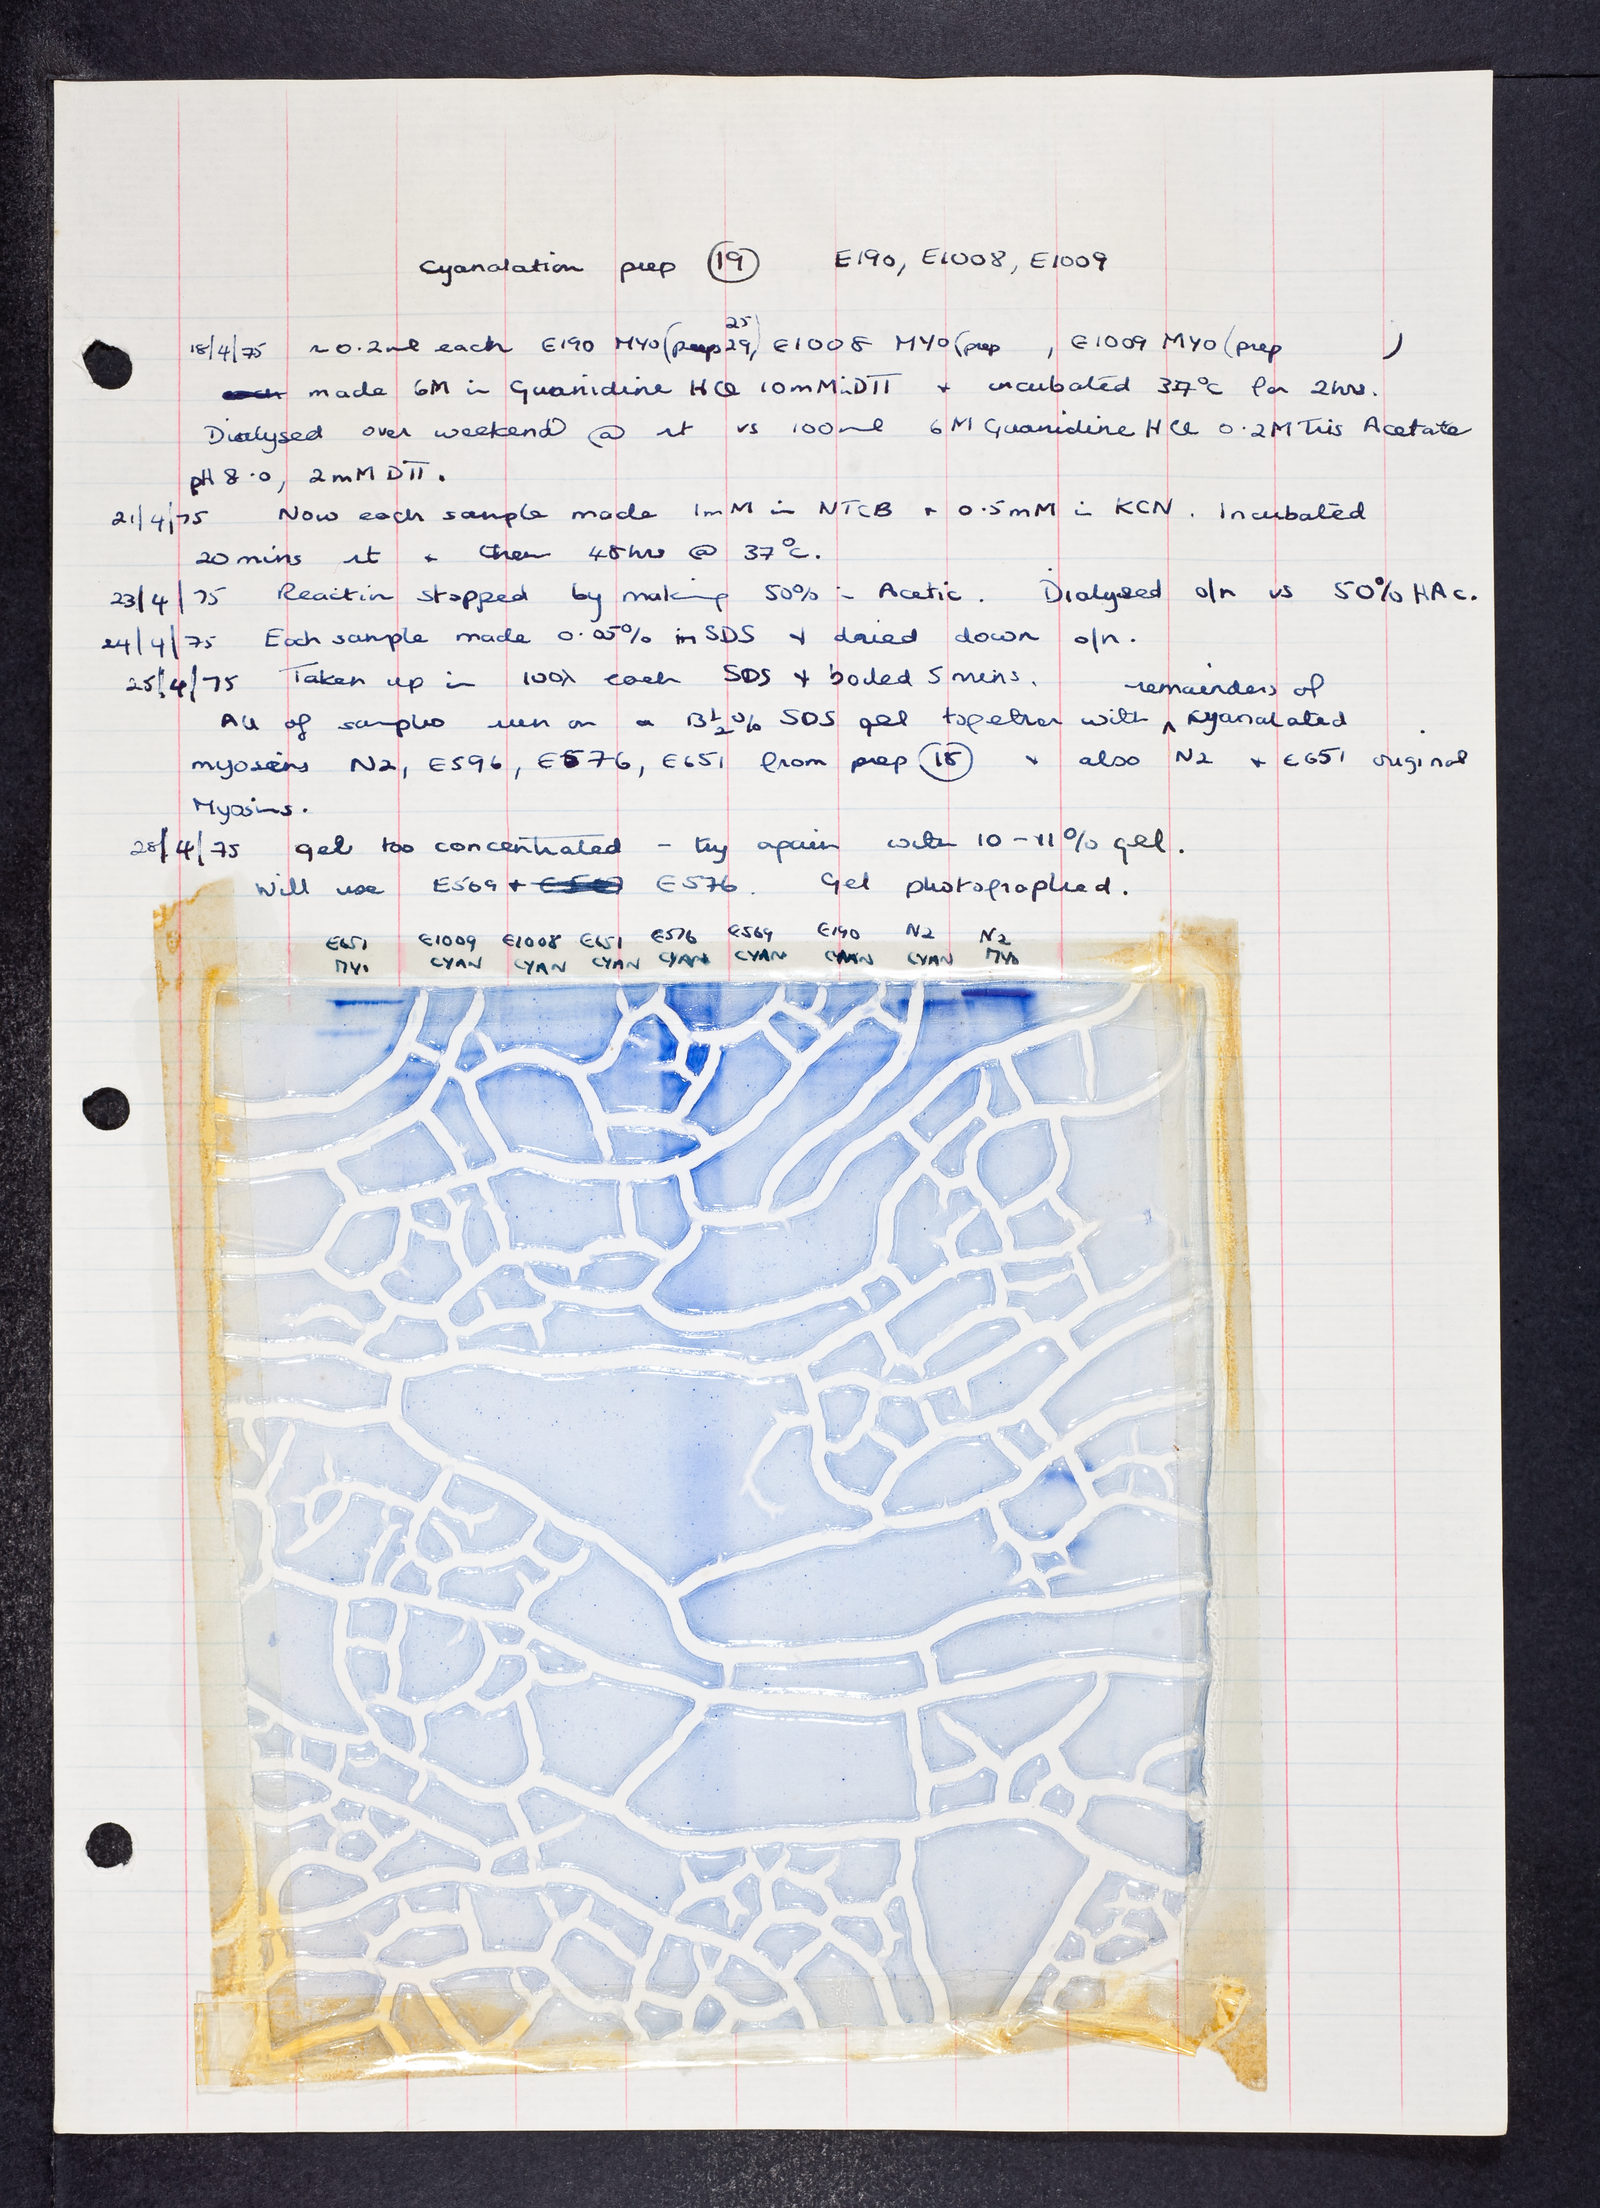 Cyanalation prep 19 E190, E1008, E1009
18/4/75 ~0.2ml each E190 MYO (prep 29, 25) E1008 MYO (prep , E1009 MYO (prep )
made 6M in Guanidine HCl 10mM in DTT + incubated 37°C for 2hrs.
Dialysed over weekend @ rt vs 100ml 6M Guanidine HCl 0.2M Tris Acetate
pH 8.0, 2mM DTT.
21/4/75 Now each sample made 1mM in NTCB + 0.5mM in KCN. Incubated
20mins rt + then 48hrs @ 37°C.
23/4/75 Reaction stopped by making 50% in Acetic. Dialysed o/n vs 50% HAc.
24/4/75 Each sample made 0.05% in SDS + dried down o/n.
25/4/75 Taken up in 100λ each SDS + boiled 5 mins.
All of samples run on a 13½% SDS gel together with remainders of cyanalated
myosins N2, E596, E576, E651 from prep 18 + also N2 + E651 original
Myosins.
28/4/75 gel too concentrated - try again with 10-11% gel.
Will use E569 + E576. Gel photographed.
E651 E1009 E1008 E651 E576 E569 E190 N2 N2
MYO CYAN CYAN CYAN CYAN CYAN CYAN CYAN MYO